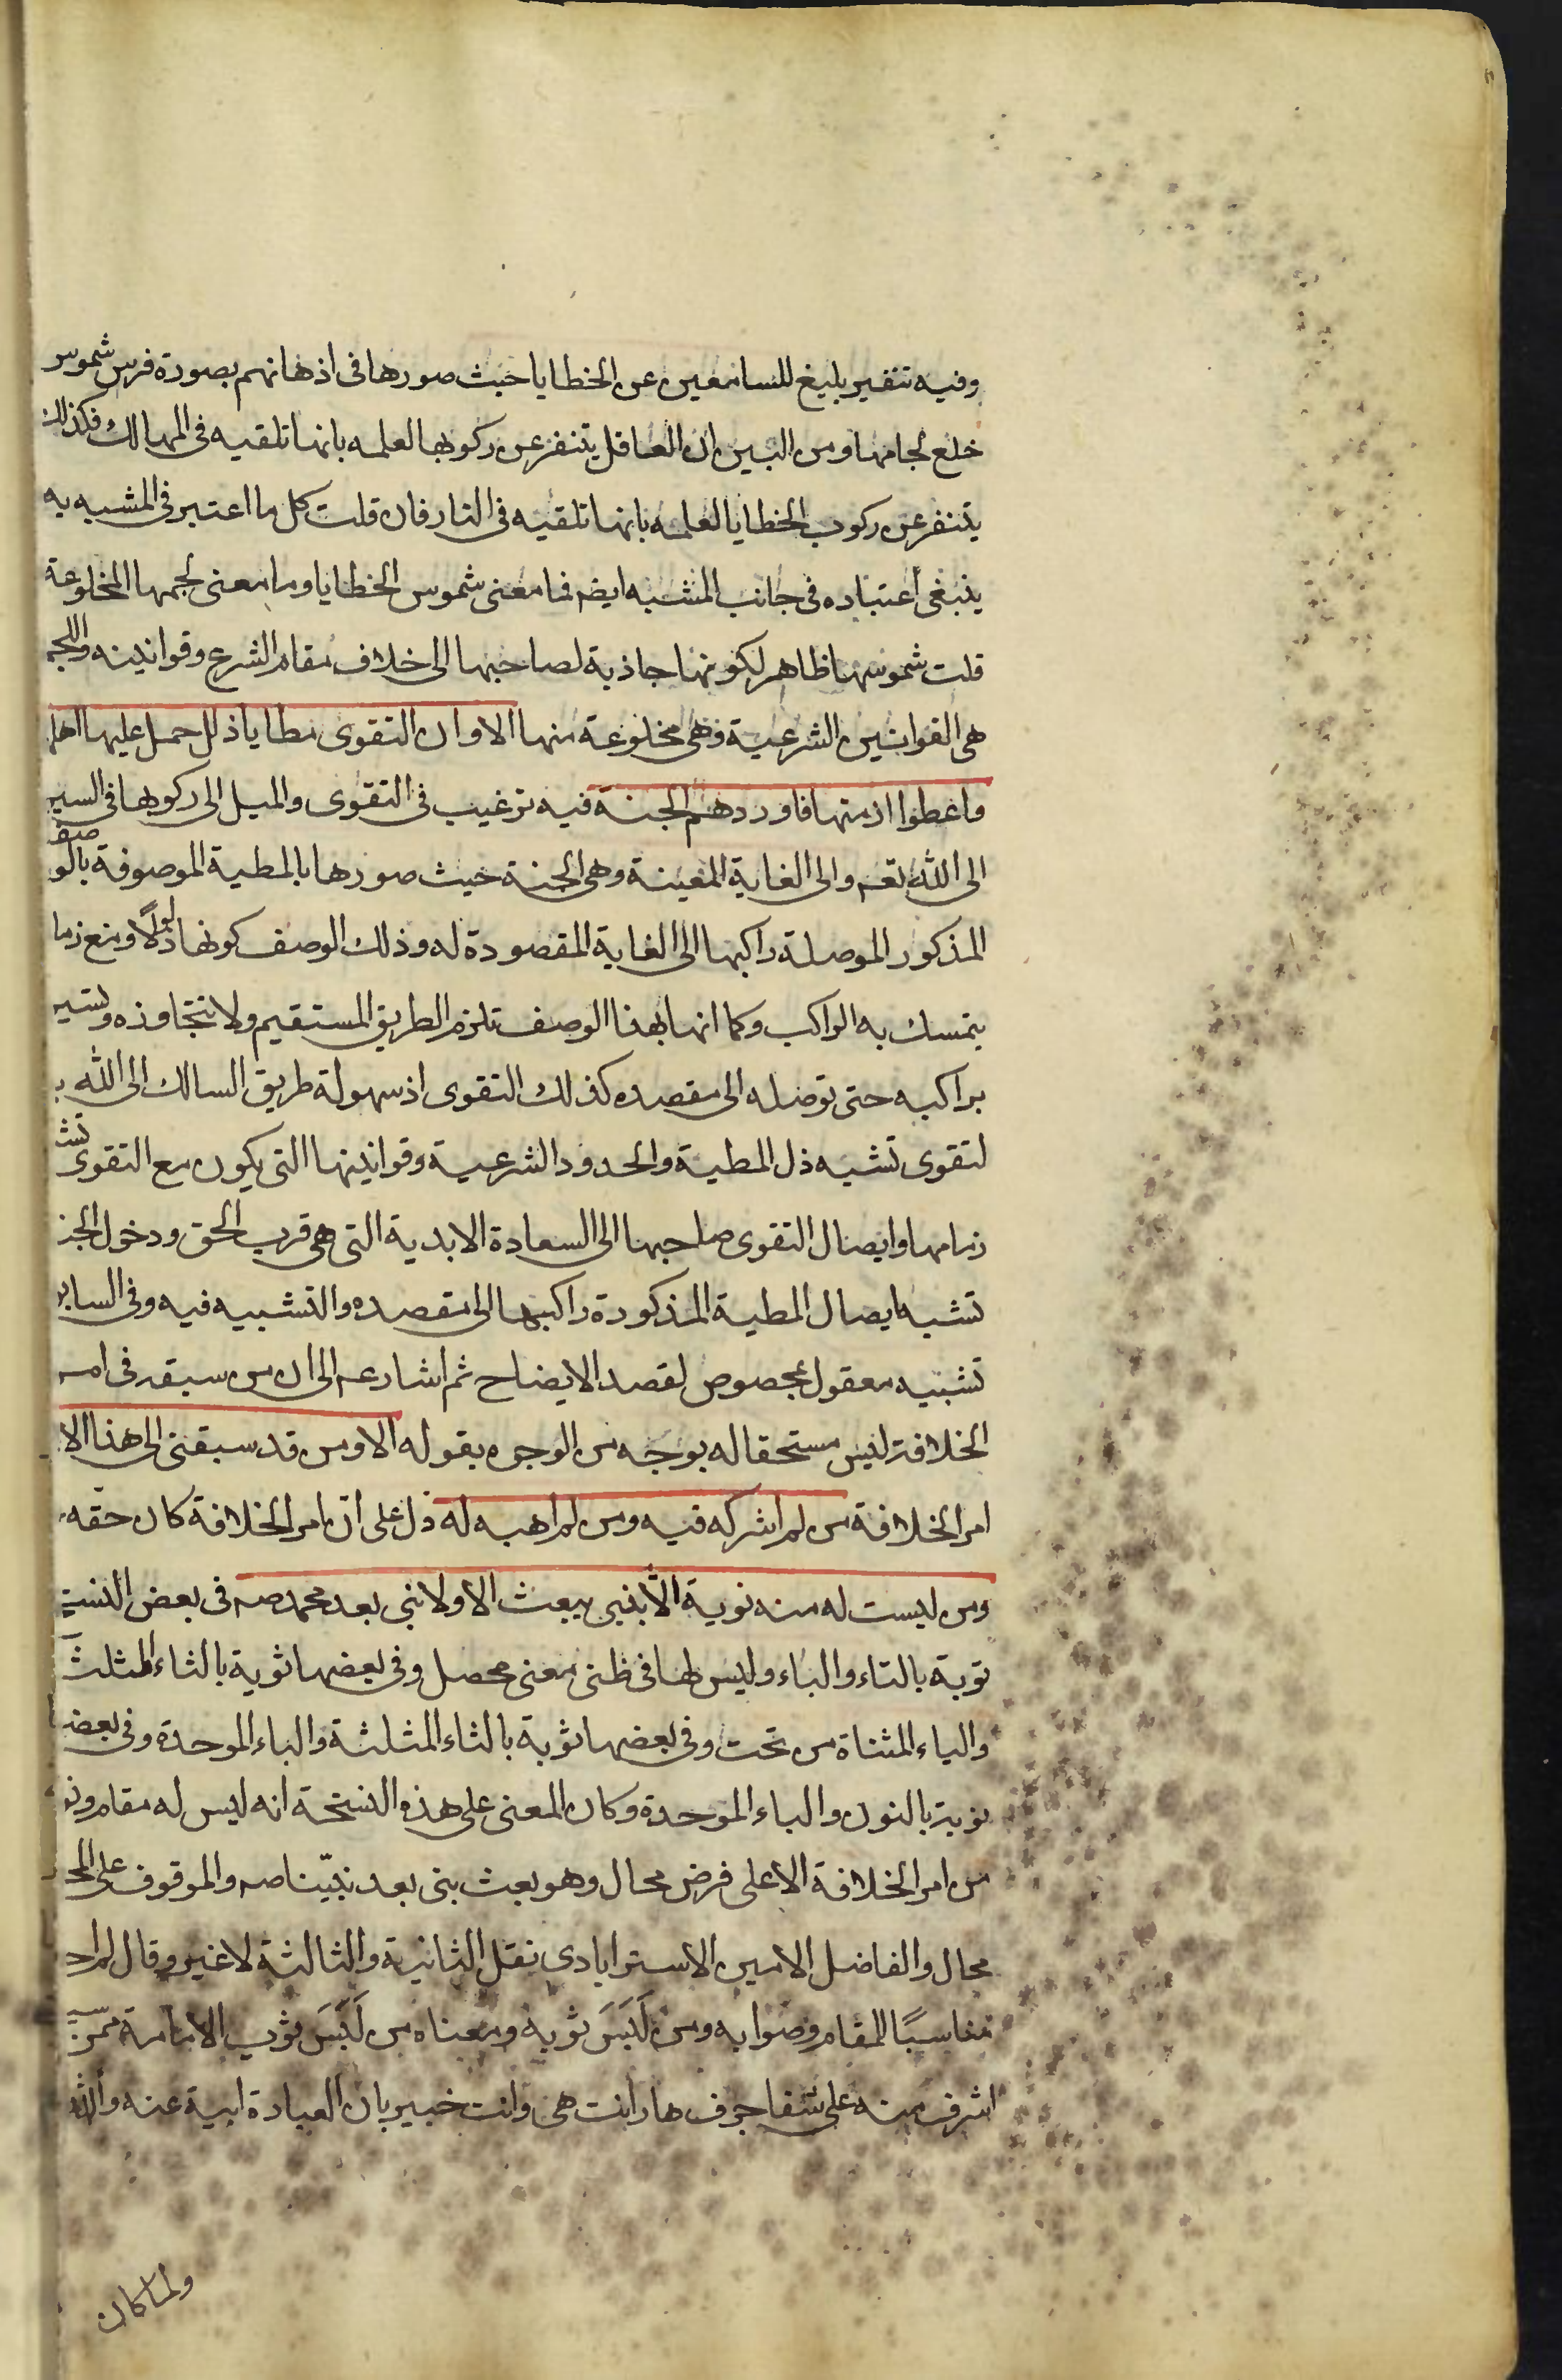 وفيه تنفير بليغ للسامعين عن الخطايا حيث صورها في اذهانهم بصورة فرس شموس
خلع لجامها ومن البين ان العاقل يتنفر عن ركوبها لعلمه بانها تلقيه في المهالك فكذلك
يتنفر عن ركوب الخطايا لعلمه بانها تلقيه في النار فان قلت كل ما اعتبر في المشبه به
ينبغي اعتباره في جانب المشبه ايضم فما معنى شموس الخطايا وما معنى لجمها المخلوعة
قلت شموسها ظاهر لكونها جاذبة لصاحبها الى خلاف مقام الشرع وقوانينه واللجم
هي القوانين الشرعية وهي مخلوعة منها الا وان التقوى مطايا ذلل حمل عليها اهلها
واعطوا ازمتها فاوردهم الجنة فيه ترغيب في التقوى والميل الى ركوبها في السير
الى الله تعم والى الغاية المعينة وهي الجنة حيث صورها بالمطية الموصوفة بالوصف
المذكور الموصلة راكبها الى الغاية المقصودة له وذلك الوصف كونها ذلولًا ومنع زما
يتمسك به الراكب وكما انها بهذا الوصف تلزم الطريق المستقيم ولا تتجاوزه وتسير
براكبه حتى توصله الى مقصده كذلك التقوى اذ سهولة طريق السالك الى الله با
لتقوى تشبه ذل المطية والحدود الشرعية وقوانينها التي يكون مع التقوى تشبه
زمامها وايصال التقوى صاحبها الى السعادة الابدية التي هي قرب الحق ودخول الجنة
تشبه ايصال المطية المذكورة راكبها الى مقصده والتشبيه فيه وفي السابق
تشبيه معقول بمحصوص لقصد الايضاح ثم اشار عم الى ان من سبقه في امر
الخلافة ليس مستحقا له بوجه من الوجوه بقوله الا ومن قد سبقني الى هذا الا
امر الخلافة من لم اشركه فيه ومن لم اهبه له دل على انّ امر الخلافة كان حقه
ومن ليست له منه نوبة الّا بنبي يبعث الا ولا نبي بعد محمد صم في بعض النسخ
توبة بالتاء والباء وليس لها في ظني معنى محصل وفي بعضها ثوية بالثاء المثلثة
والياء المثناة من تحت وفي بعضها ثوبة بالثاء المثلثة والباء الموحدة وفي بعضها
نوبة بالنون والباء الموحدة وكان المعنى على هذه النسخة انه ليس له مقام ونو
من امر الخلافة الا على فرض محال وهو بعث نبي بعد نبيّنا صم والموقوف على المحال
محال والفاضل الامين الاسترابادي نقل الثانية والثالثة لا غير وقال لم ار
مناسبًا للمقام وصوابه ومن لَبَسَ ثوبه ومعناه من لَبَسَ ثوب الامامة ممن
اشرف منه على شفا جرف هار انت هى وانت خبير بان العبارة ابية عنه والله
ولما كان